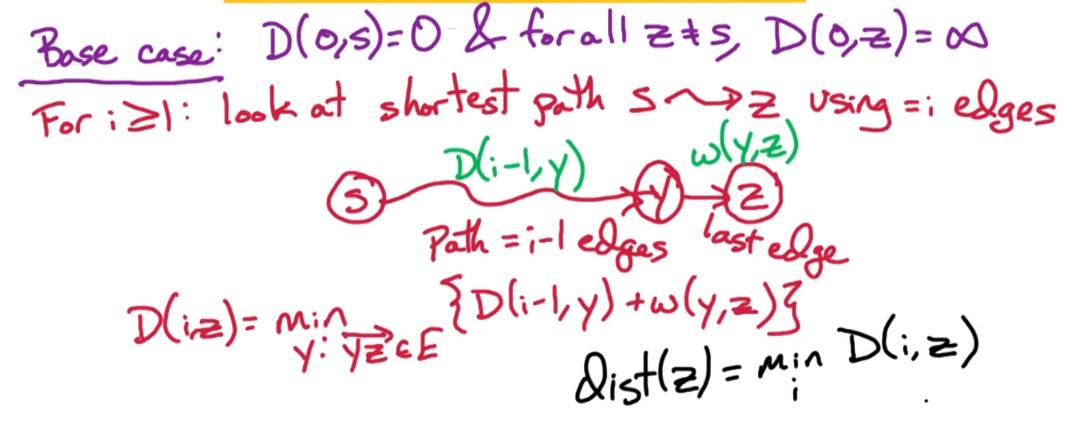 Base case: D(0,s)=0 & for all z≠s, D(0,z)=∞
For i≥1: look at shortest path s⇝z using =i edges
D(i-1,y) w(y,z)
s y z
Path =i-1 edges last edge
D(i,z)= min {D(i-1,y)+w(y,z)}
y: yz→∈E
dist(z)= min D(i,z)
i